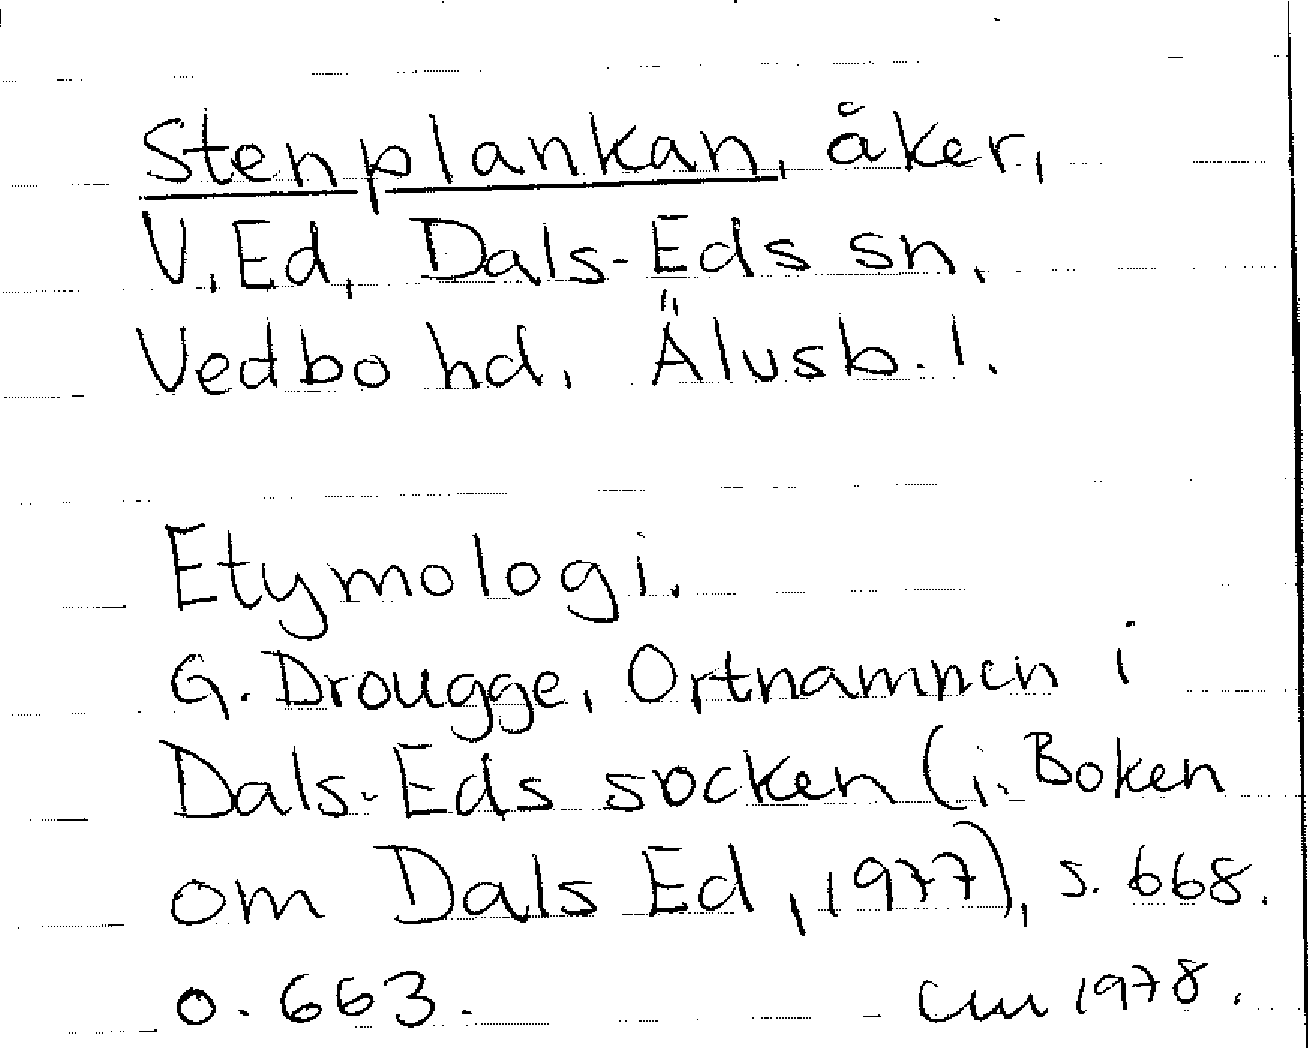 Stenplankan, åker,
V. Ed, Dals-Eds sn.
Vedbo hd, Älvsb. l.
Etymologi.
G. Drougge, Ortnamnen i
Dals-Eds socken (i: Boken
om Dals Ed, 1977), s. 668.
o. 663. CM 1978.